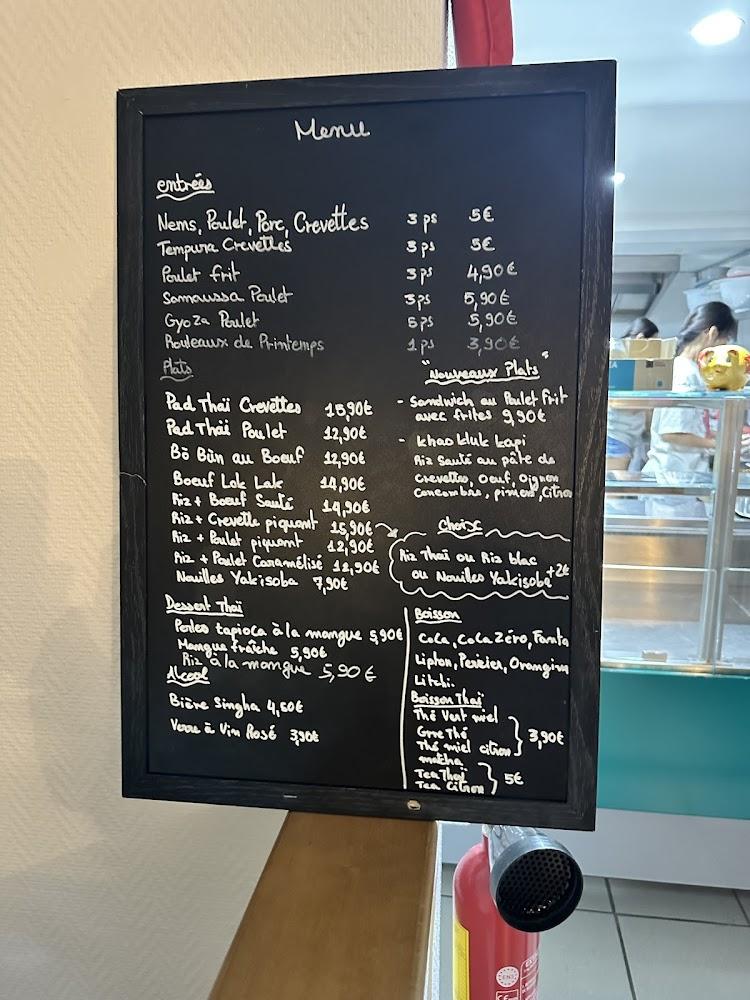 Menu
entrées
Nems, Poulet, Porc, Crevettes 3 ps 5€
Tempura Crevettes 3 ps 5€
Poulet frit 3 ps 4,90€
Samoussa Poulet 3 ps 5,90€
Gyoza Poulet 5 ps 5,90€
Rouleaux de Printemps 1 ps 3,90€
Plats
Pad Thaï Crevettes 15,90€
Pad Thaï Poulet 12,90€
Bò Bùn au Boeuf 12,90€
Boeuf Lok Lak 14,90€
Riz + Boeuf Sauté 14,90€
Riz + Crevette piquant 15,90€
Riz + Poulet piquant 12,90€
Riz + Poulet Caramélisé 12,90€
Nouilles Yakisoba 7,90€
"Nouveaux Plats"
- Sandwich au Poulet frit
avec frites 9,90€
- Khao kluk kapi
Riz Sauté au pâte de
crevettes, oeuf, oignon
concombre, piment, citron
choix
Riz Thaï ou Riz blac
ou Nouilles Yakisoba +2€
Dessert Thaï
Perles tapioca à la mangue 5,90€
Mangue fraîche 5,90€
Riz à la mangue 5,90€
Alcool
Bière Singha 4,50€
Verre à Vin Rosé 3,90€
Boisson
Coca, Coca Zéro, Fanta
Lipton, Perrier, Orangina
Litchi.
Boisson Thaï
Thé Vert miel
Thé miel citron 3,90€
matcha
Tea Thaï
Tea Citron 5€